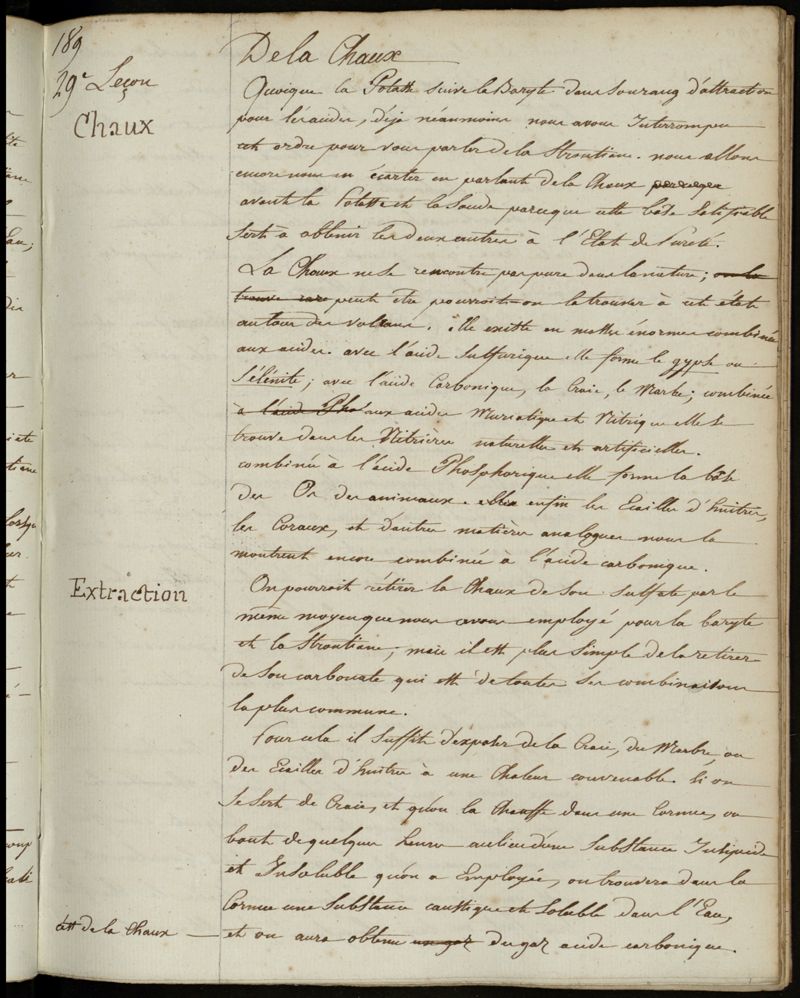 189
29e Leçon
Chaux
De la Chaux
Quoique la Potasse suive la Baryte dans son rang d'attraction
pour les acides, déja néanmoins nous avons Interrompu
cet ordre pour vous parler de la Strontiane. nous allons
encore nous en écarter en parlant de la Chaux
avant la Potasse et la Soude parceque cette base Salifiable
Sert à obtenir les deux autres à l'Etat de Pureté.
La Chaux ne se rencontre pas pure dans la nature; on la
trouve rare peut être pourroit-on la trouver à cet état
autour des volcans. elle existe en masses énormes combinée
aux acides. avec l'acide Sulfurique elle forme le gypse ou
Sélénite; avec l'acide Carbonique, la Craie, le Marbre; combinée
à l'acide Pho aux acides Muriatique et Nitrique elle se
trouve dans les Nitrières naturelles et artificielles.
combinée à l'acide Phosphorique elle forme la base
des Os des animaux. enfin les Ecailles d'huitres,
les Coraux, et d'autres matières analogues nous la
montrent encore combinée à l'acide carbonique.
Extraction
On pourroit rétirer la Chaux de Son Sulfate par le
même moyen que nous avons employé pour la baryte
et la Strontiane; mais il est plus Simple de la retirer
de Son carbonate qui est de toutes Ses combinaisons
la plus commune.
Pour cela il Suffit d'exposer de la Craie, du Marbre, ou
des Ecailles d'huitres à une Chaleur convenable. Si on
Se Sert de Craie, et qu'on la Chauffe dans une Cornue, au
bout de quelques heures au lieu d'une Substance Insipide
et Insoluble qu'on a Employée, on trouvera dans la
Cornue une Substance caustique et Soluble dans l'Eau,
c'est de la Chaux
et on aura obtenu un gaz du gaz acide carbonique.